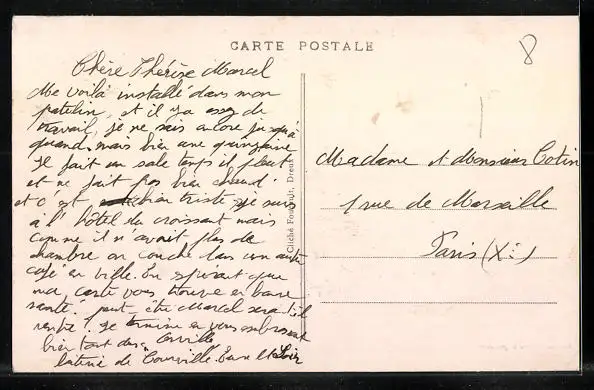 CARTE POSTALE
8
Chère Thérèse Marcel
Me voilà installé dans mon
patelin, et il y a assez de
travail, je ne sais encore jusqu'à
quand, mais bien une quinzaine
Il fait un sale temps il pleut
et ne fait pas bien chaud
et c'est bien triste, je suis
à l'hôtel du croissant mais
comme il n'avait plus de
chambre on couche dans un autre
café en ville. En espérant que
ma carte vous trouve en bonne
santé. peut être Marcel sera t'il
rentré. Je termine en vous embrassant
bien tout deux
de Courville. Eure et Loir
Cliché Foucault, Dreux
Madame et Monsieur Cotin
1 rue de Marseille
Paris (Xe)